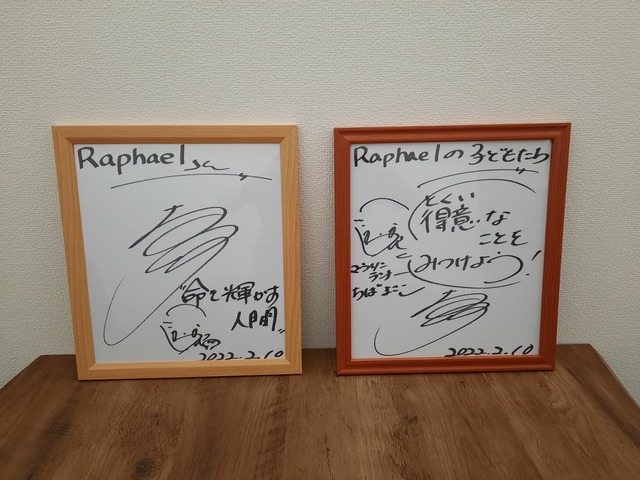 Raphaelさん
"命を輝かす
人間"
2022.2.10
Raphaelの子どもたち
とくい
得意な
ことを
みつけよう!
マラソン
ランナー
2022.2.10